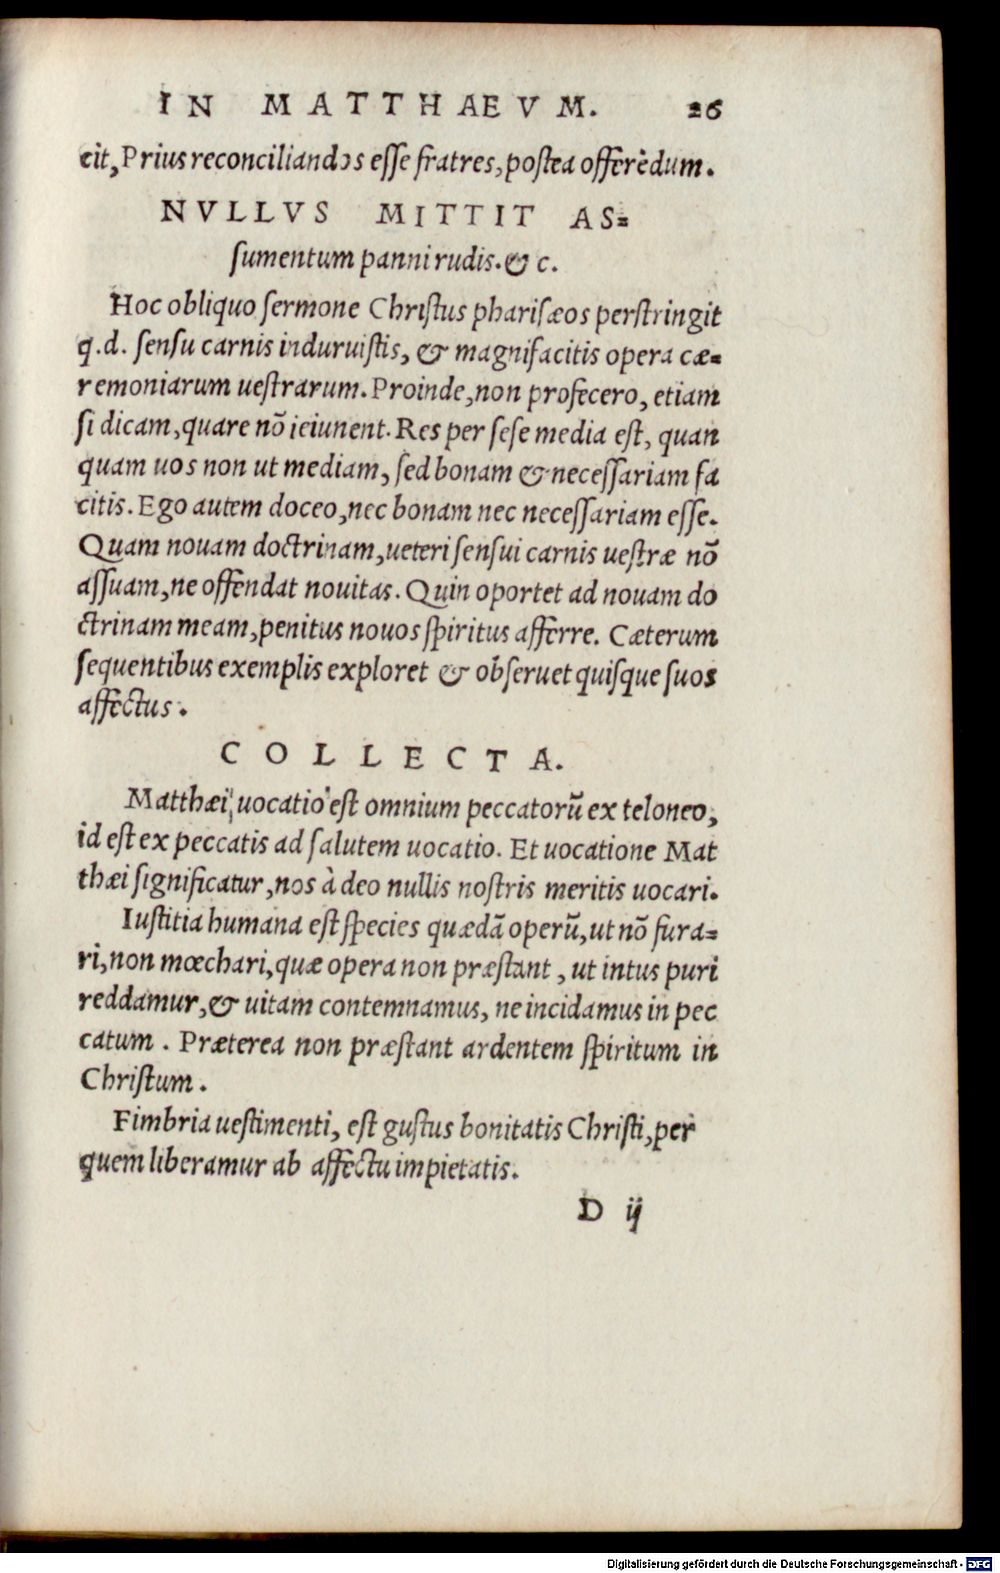 IN MATTHAEVM. 26
cit, Prius reconciliandos esse fratres, postea offerēdum.
NVLLVS MITTIT AS=
sumentum panni rudis. & c.
Hoc obliquo sermone Christus pharisæos perstringit
q.d. sensu carnis induruistis, & magnifacitis opera cæ=
remoniarum uestrarum. Proinde, non profecero, etiam
si dicam, quare nō ieiunent. Res per sese media est, quan
quam uos non ut mediam, sed bonam & necessariam fa
citis. Ego autem doceo, nec bonam nec necessariam esse.
Quam nouam doctrinam, ueteri sensui carnis uestræ nō
assuam, ne offendat nouitas. Quin oportet ad nouam do
ctrinam meam, penitus nouos spiritus afferre. Cæterum
sequentibus exemplis exploret & obseruet quisque suos
affectus.
COLLECTA.
Matthæi uocatio est omnium peccatorū ex teloneo,
id est ex peccatis ad salutem uocatio. Et uocatione Mat
thæi significatur, nos à deo nullis nostris meritis uocari.
Iustitia humana est species quædā operū, ut nō fura=
ri, non mœchari, quæ opera non præstant, ut intus puri
reddamur, & uitam contemnamus, ne incidamus in pec
catum. Præterea non præstant ardentem spiritum in
Christum.
Fimbria uestimenti, est gustus bonitatis Christi, per
quem liberamur ab affectu impietatis.
D ij
Digitalisierung gefördert durch die Deutsche Forschungsgemeinschaft - DFG